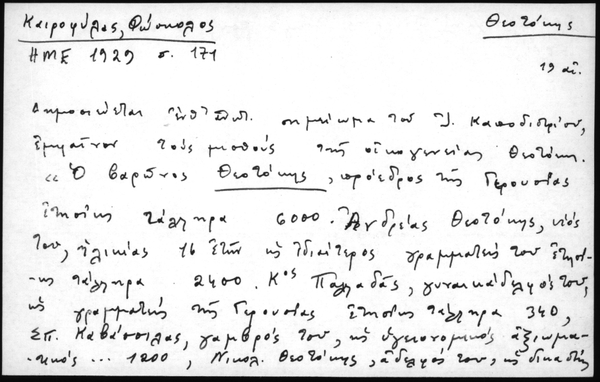 Καιροφύλας, Φώσκολος
Θεοτόκης
ΗΜΕ 1929 σ. 171
19 αἰ.
Δημοσιεύεται σημείωμα τοῦ Ἰ. Καποδιστρίου,
ἐμφαῖνον τοὺς μισθοὺς τῆς οἰκογενείας Θεοτόκη.
"Ὁ βαρῶνος Θεοτόκης, πρόεδρος τῆς Γερουσίας
ἐτησίως τάλληρα 6000. Ἀνδρέας Θεοτόκης, υἱός
του, ἡλικίας 16 ἐτῶν κ ἰδιαίτερος γραμματεύς του ἐτησί-
ως τάλληρα 2400. Κος Παλλαδᾶς, γυναικάδελφός του,
κ γραμματεὺς τῆς Γερουσίας ἐτησίως τάλληρα 340,
Σπ. Καβάσιλας, γαμβρός του, κ ὑγειονομικὸς ἀξιωμα-
τικός ... 1200, Νικολ. Θεοτόκης, ἀδελφός του, κ δικαστὴς